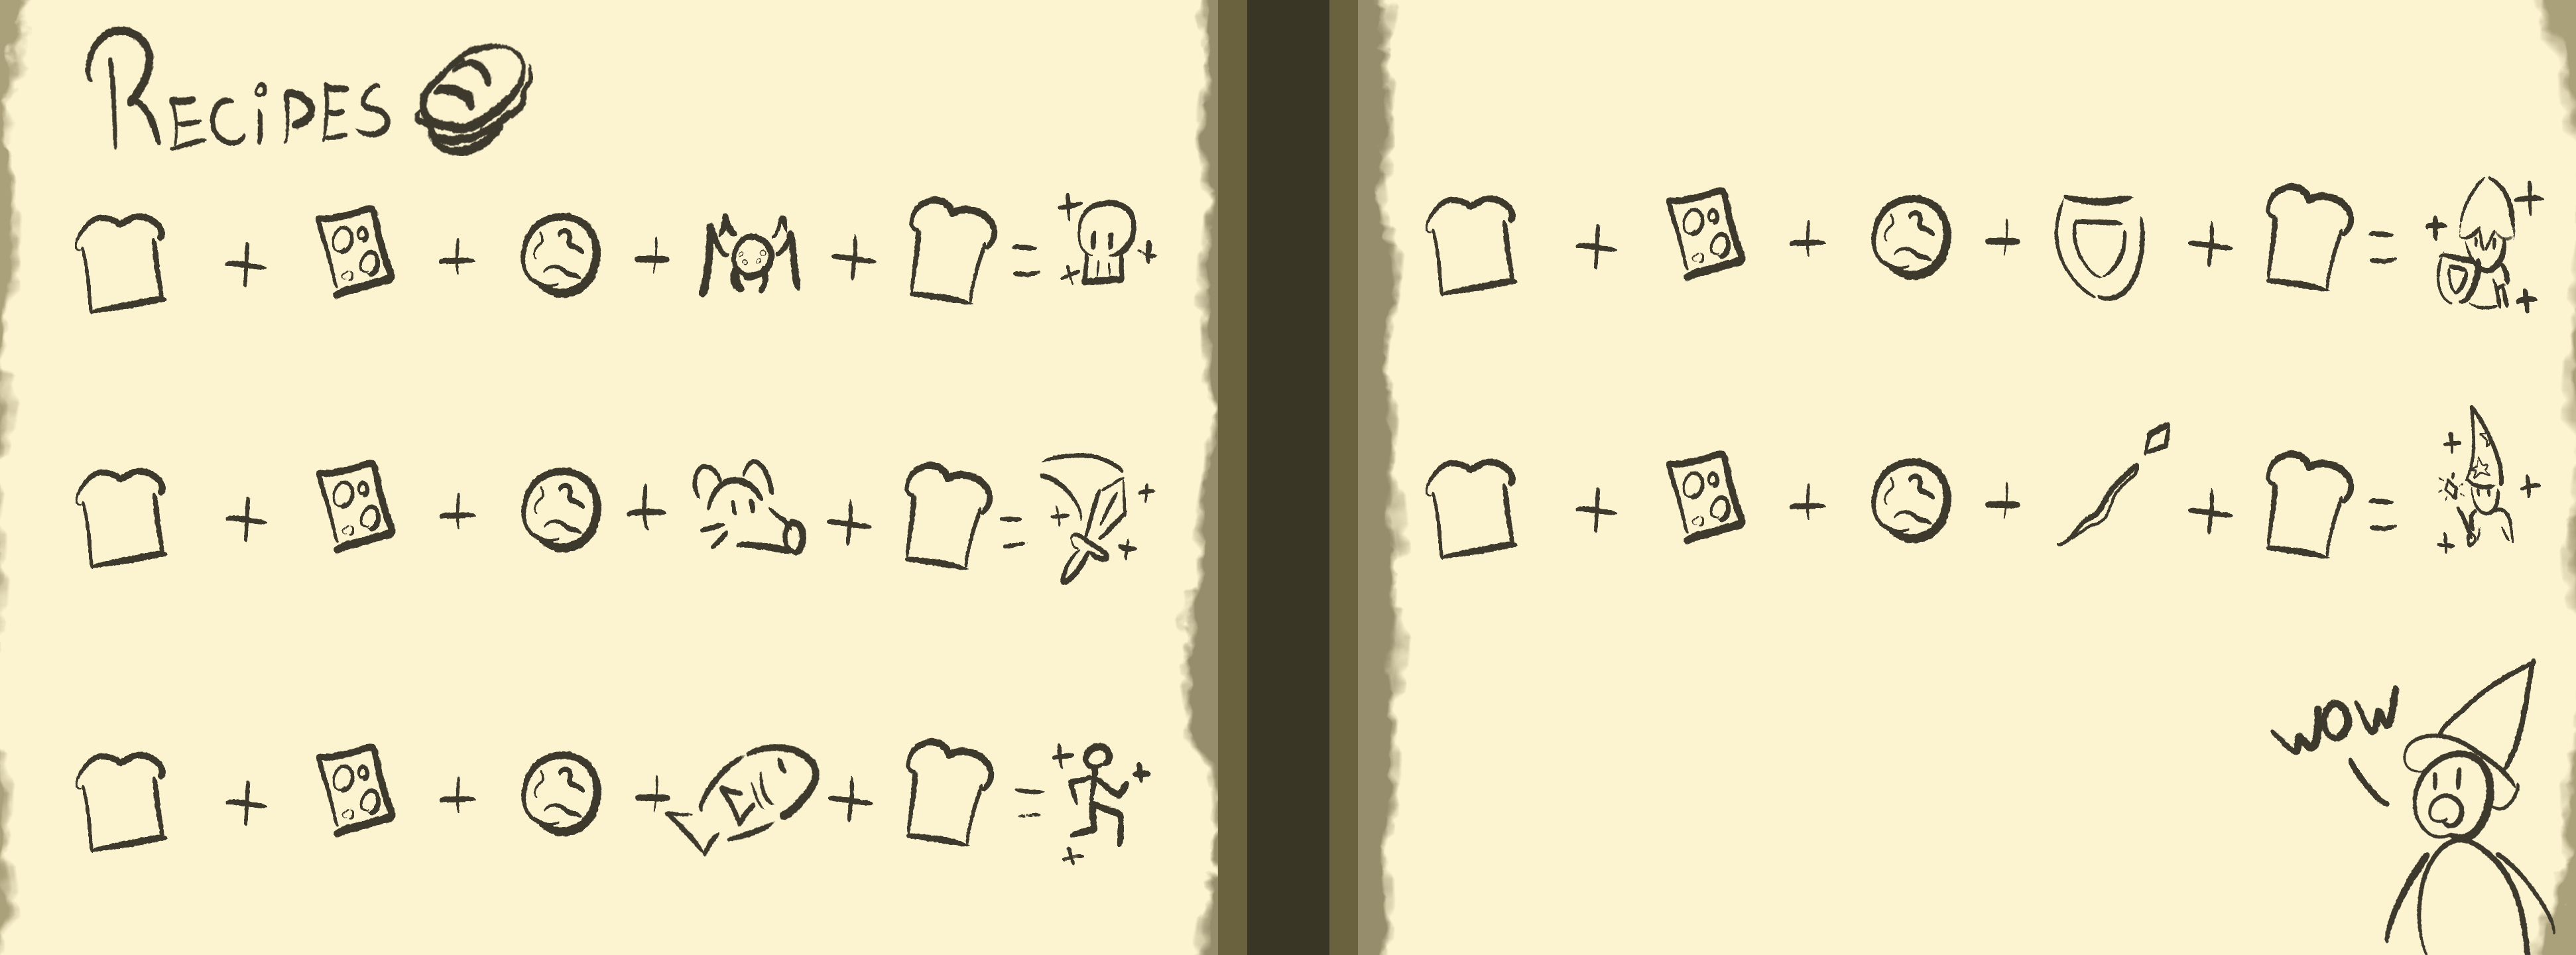 RECiPES
+ + + + =
+ + + + =
+ + + + =
+ + + + =
+ + + + =
WOW